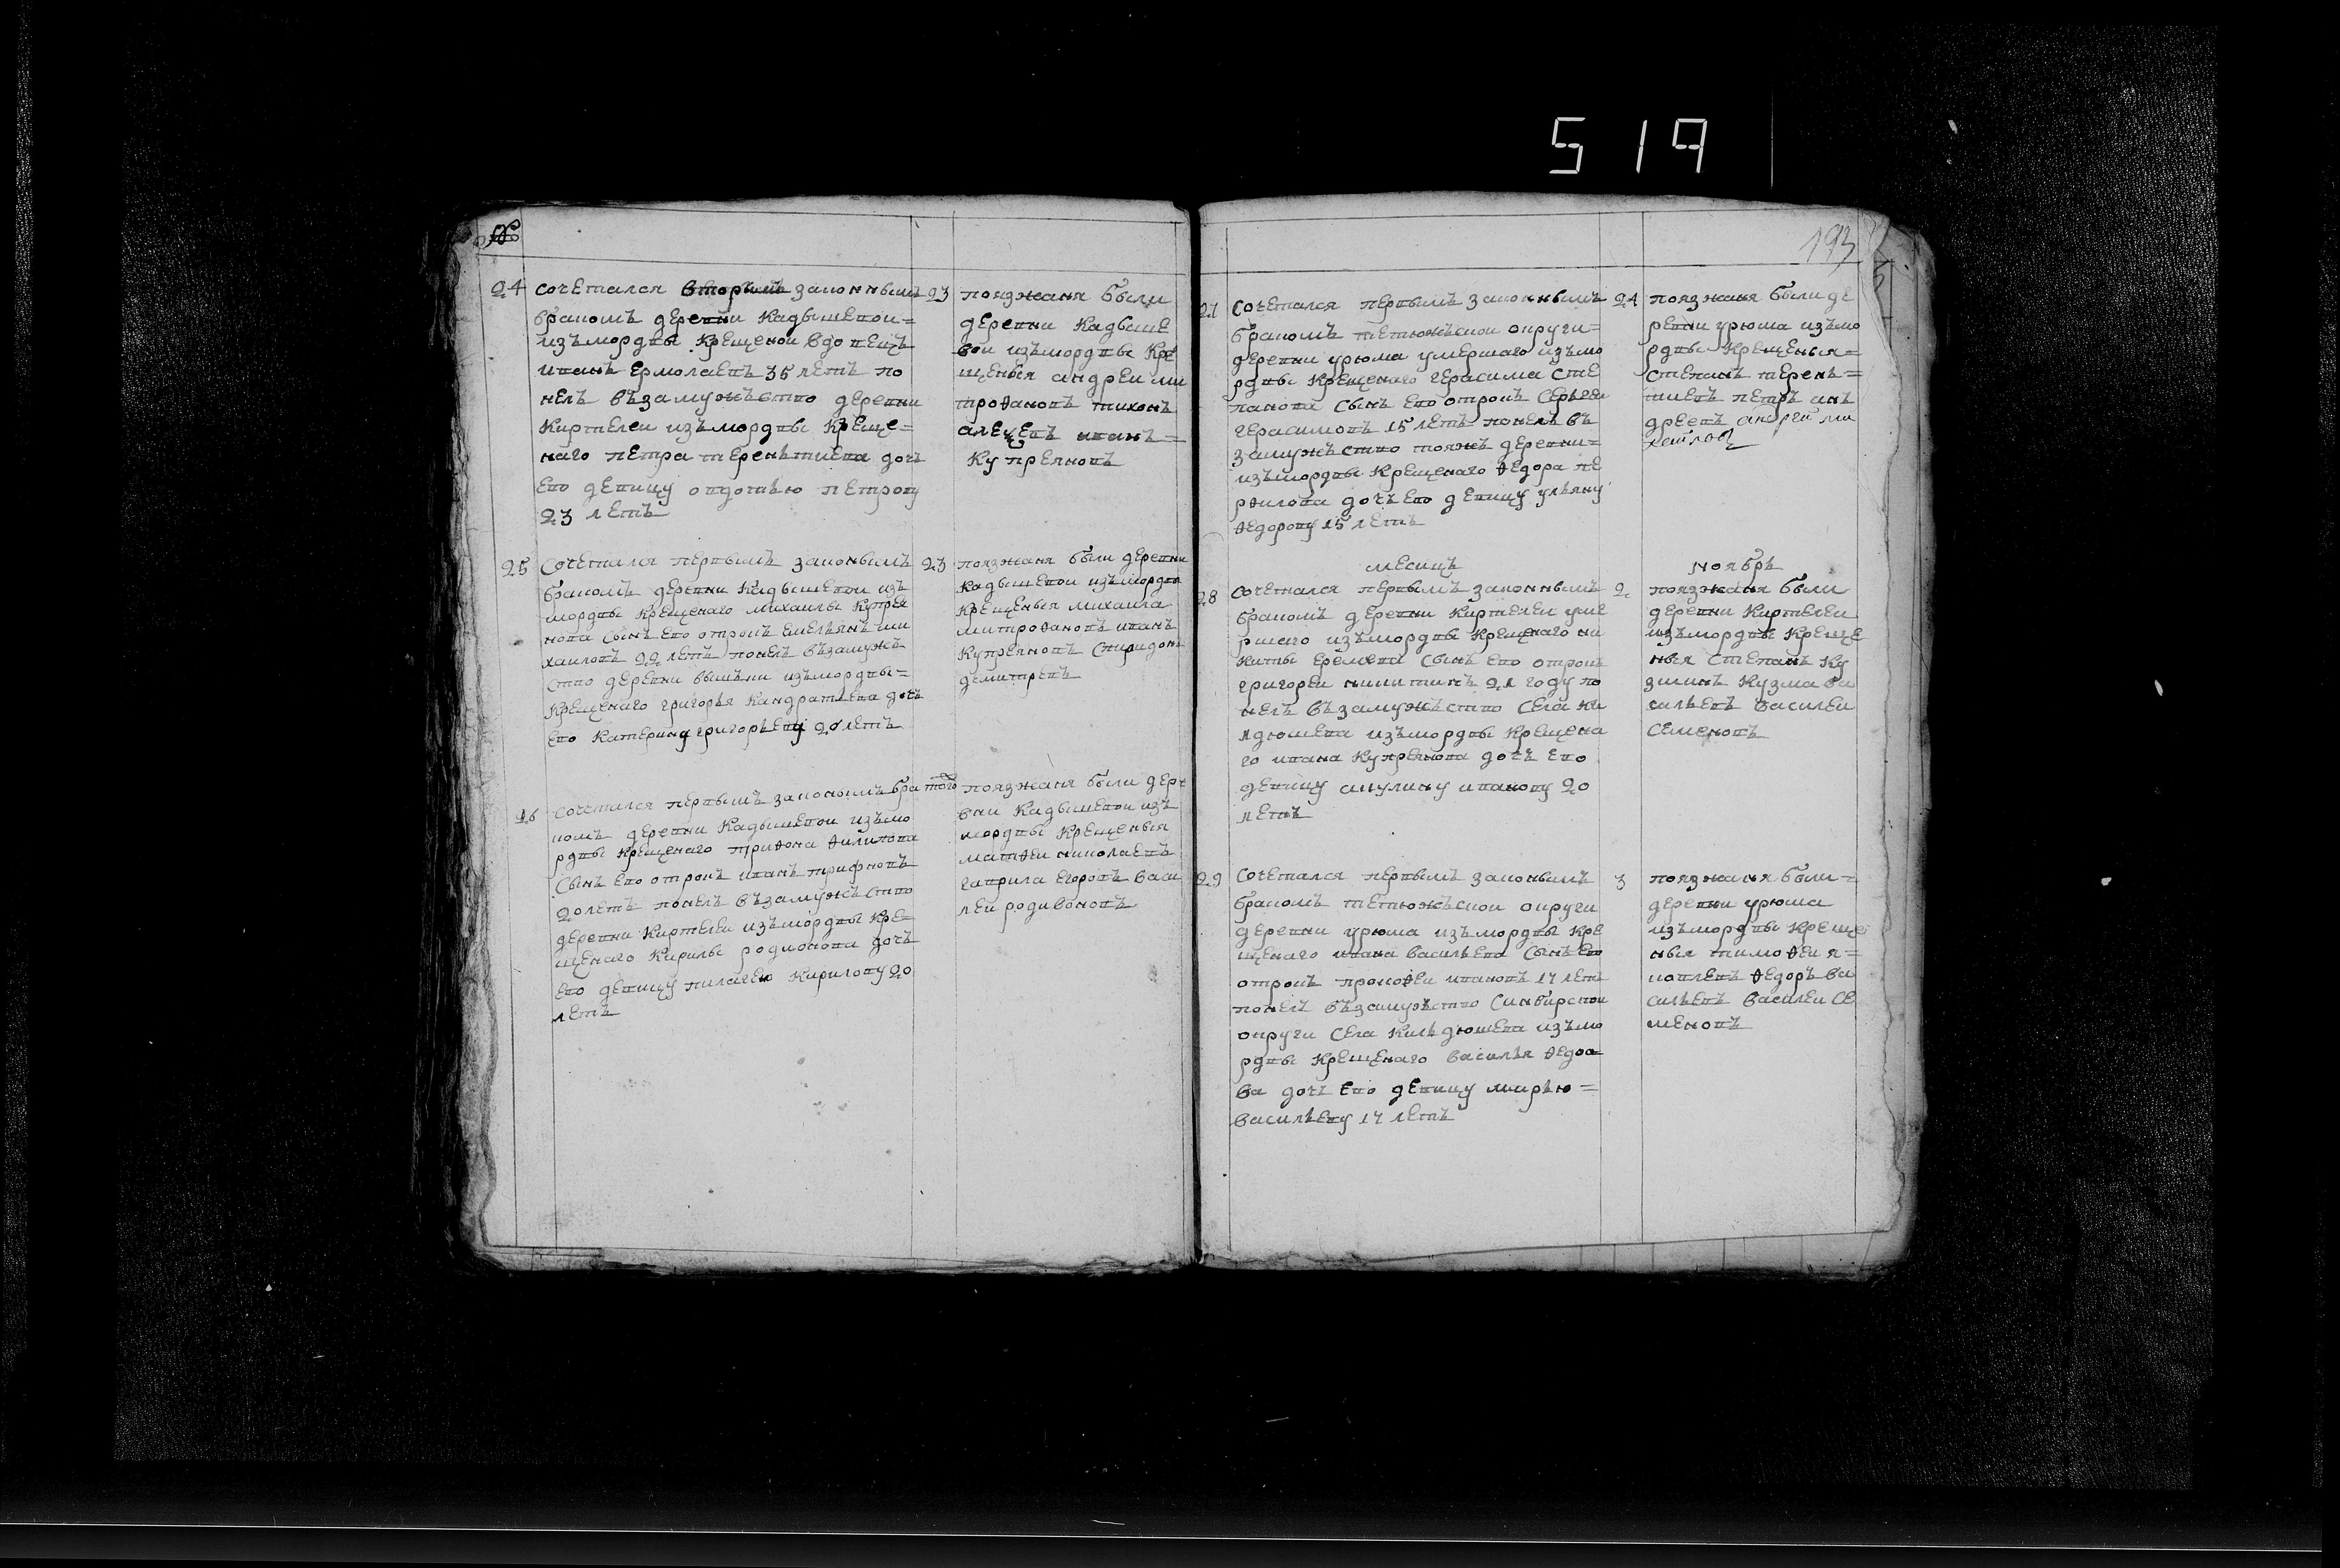 519
193
№
24 сочетался вторымъ законнымъ 23
бракомъ деревни Кадышевои=
изъ мордвы Крещенои вдовецъ
иванъ Ермолаевъ 35 летъ по
нелъ въ замужъство деревни
Киртелеи изъ мордвы Креще=
наго петра терентиева дочь
Ево девицу овдотью петрову
23 летъ
поязжаня были
деревни Кадыше
вои изъ мордвы Кре
щеныя андреи ми
трофановъ тихонъ
алеѯевъ иванъ=
Купреяновъ
25 Сочетался первымъ законымъ 23
бракомъ деревни Кадышевои изъ
мордвы Крещенаго михаилы Купрея
нова сынъ Ево отрокъ Емельянъ ми
хаиловъ 22 летъ понелъ въ замужъ
ство деревни вышъки изъ мордвы=
Крещенаго григорья Кандратьева дочь
Ево Катерину григорьеву 20 летъ
поязжаня были деревни
Кадышевои изъ мордвы
Крещеныя михаила
митрофановъ иванъ
Купреяновъ спиридонъ
демитревъ
26 сочетался первымъ законымъ бра того
комъ деревни Кадышевои изъ мо
рдвы Крещенаго трифона филипова
Сынъ Ево отрокъ иванъ трифновъ
20 летъ понелъ въ замужъство
деревни Киртелеи изъ мордвы Кре=
щенаго Кирилы родионова дочь
Ево девицу пилагею Кирилову 20
летъ
поязжаня были дере
вни Кадышевои изъ
мордвы Крещеныя
матфеи николаевъ
гаврила Егоровъ васи
леи родивоновъ
27 Сочетался первымъ законнымъ 24
бракомъ тетюжъскои округи=
деревни урюма умершаго изъ мо
рдвы Крещенаго герасима сте
панова сынъ Ево отрокъ Серьгеи
герасимовъ 15 летъ понелъ въ
замужъство тояжъ деревни=
изъ мордвы Крещенаго федора пе
рфилова дочь Ево девицу ульяну
федорову 15 летъ
поязжаня были де
ревни урюма изъ мо
рдвы Крещеныя=
степанъ терень=
тиевъ петръ ан
дреевъ андрей ми
хайлов
месицъ ноябръ
28 сочетался первымъ законнымъ 2
бракомъ деревни Киртелеи уме
ршаго изъ мордвы Крещенаго ни
киты Еремеева сынъ Ево отрокъ
григореи никитинъ 21 году по
нелъ въ замужъство села ки
лдюшева изъ мордвы Крещена
го ивана Купреянова дочь Ево
девицу акулину иванову 20
летъ
поязжаня были
деревни Киртелеи
изъ мордвы Креще
ныя степанъ Ку
зминъ Кузма ва
сильевъ василеи
Семеновъ
29 Сочетался первымъ законымъ 3
бракомъ тетюжъскои округи
деревни урюма изъ мордвы Кре
щенаго ивана васильева сынъ Ево
отрокъ прокофеи ивановъ 17 летъ
понелъ въ замужъство Синбирскои
округи Села Кильдюшева изъ мо
рдвы Крещенаго василья федоо
ва дочь Ево девицу марью=
васильеву 17 летъ
поязжаня были=
деревни урюма
изъ мордвы Креще
ныя тимофеи я=
ковлевъ федоръ ва
сильевъ василеи се
меновъ